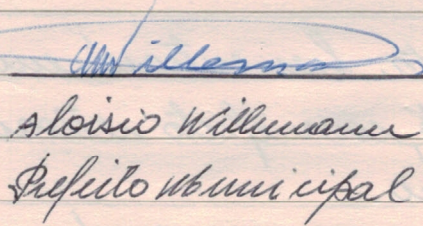 Willemann
Aloisio Willemann
Prefeito Municipal